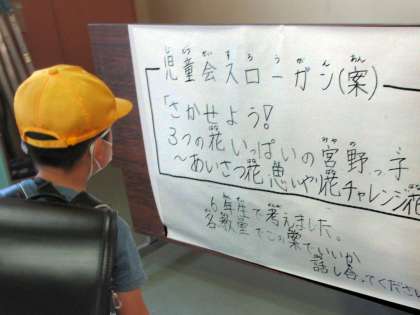 児童会スローガン(案)
「さかせよう!
3つの花いっぱいの宮野っ子
〜あいさつ花思いやり花チャレンジ花
6年生で考えました。
各教室でこの案でいいか
話し合ってください